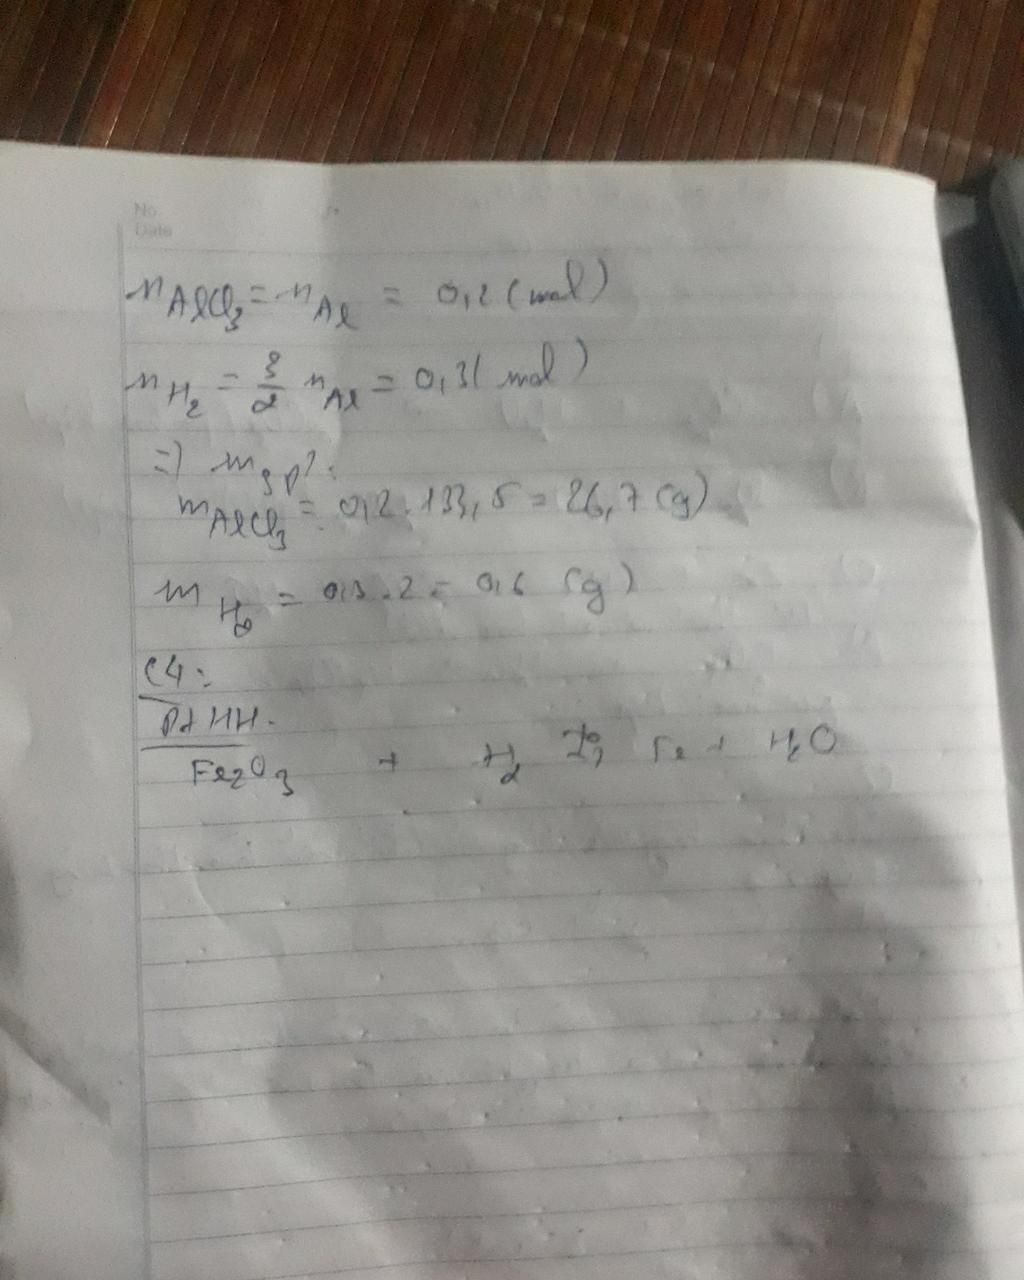 No
Date
n AlCl₃ = n Al = 0,2 (mol)
n H₂ = 3/2 n Al = 0,3 ( mol )
=) m sp?
m AlCl₃ = 0,2 . 133,5 = 26,7 (g)
m H₂ = 0,3 . 2 = 0,6 (g)
C4 :
PTHH.
Fe₂O₃ + H₂ t°, Fe + H₂O